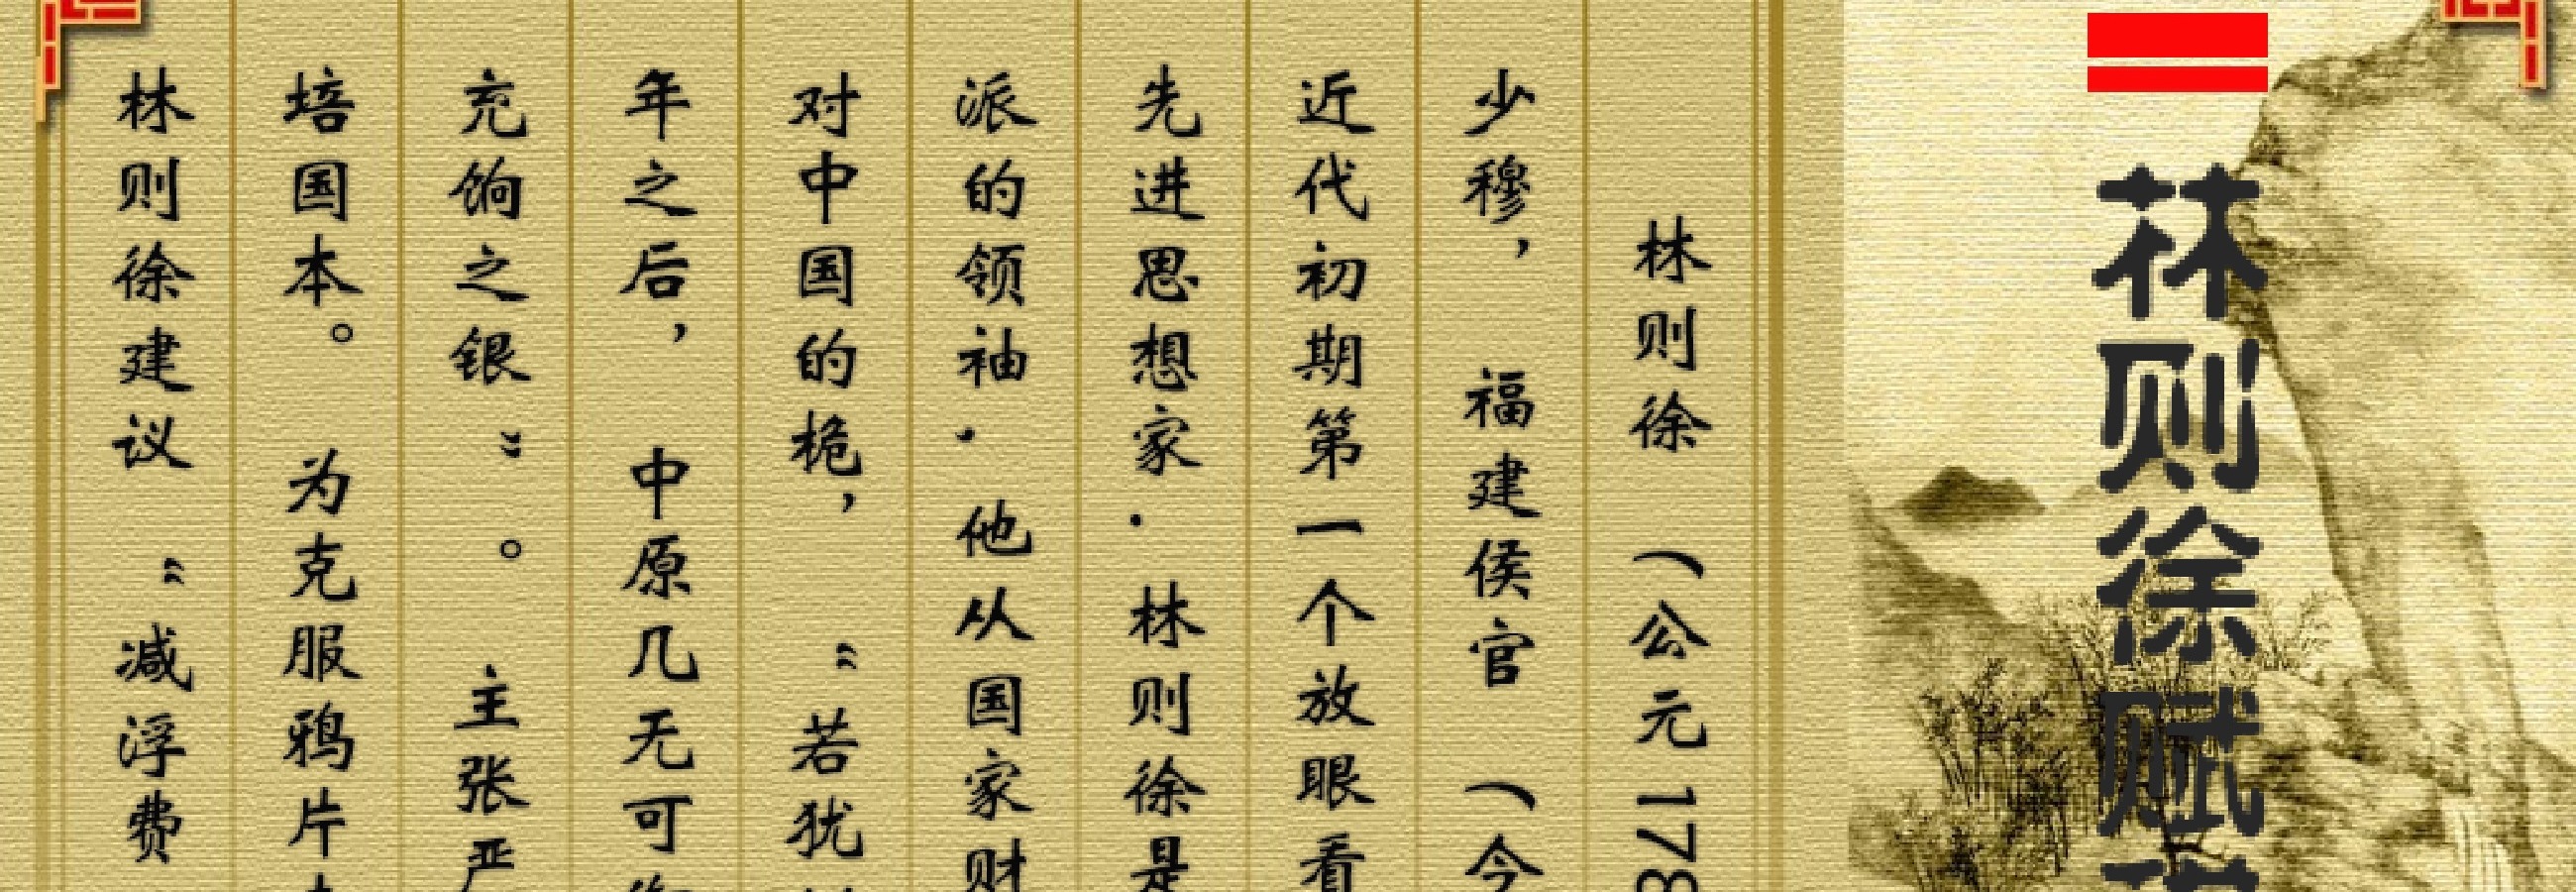 林则徐赋
林则徐（公元178
少穆，福建侯官（今
近代初期第一个放眼看
先进思想家．林则徐是
派的领袖．他从国家财
对中国的桅，“若犹
年之后，中原几无可
充饷之银”。主张严
培国本。为克服鸦片
林则徐建议“减浮费